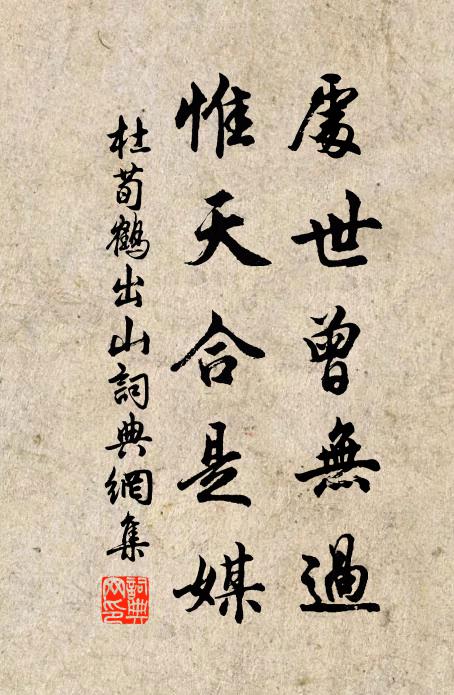 處世曾無過
惟天合是媒
杜荀鶴出山詞典網集
詞典網印